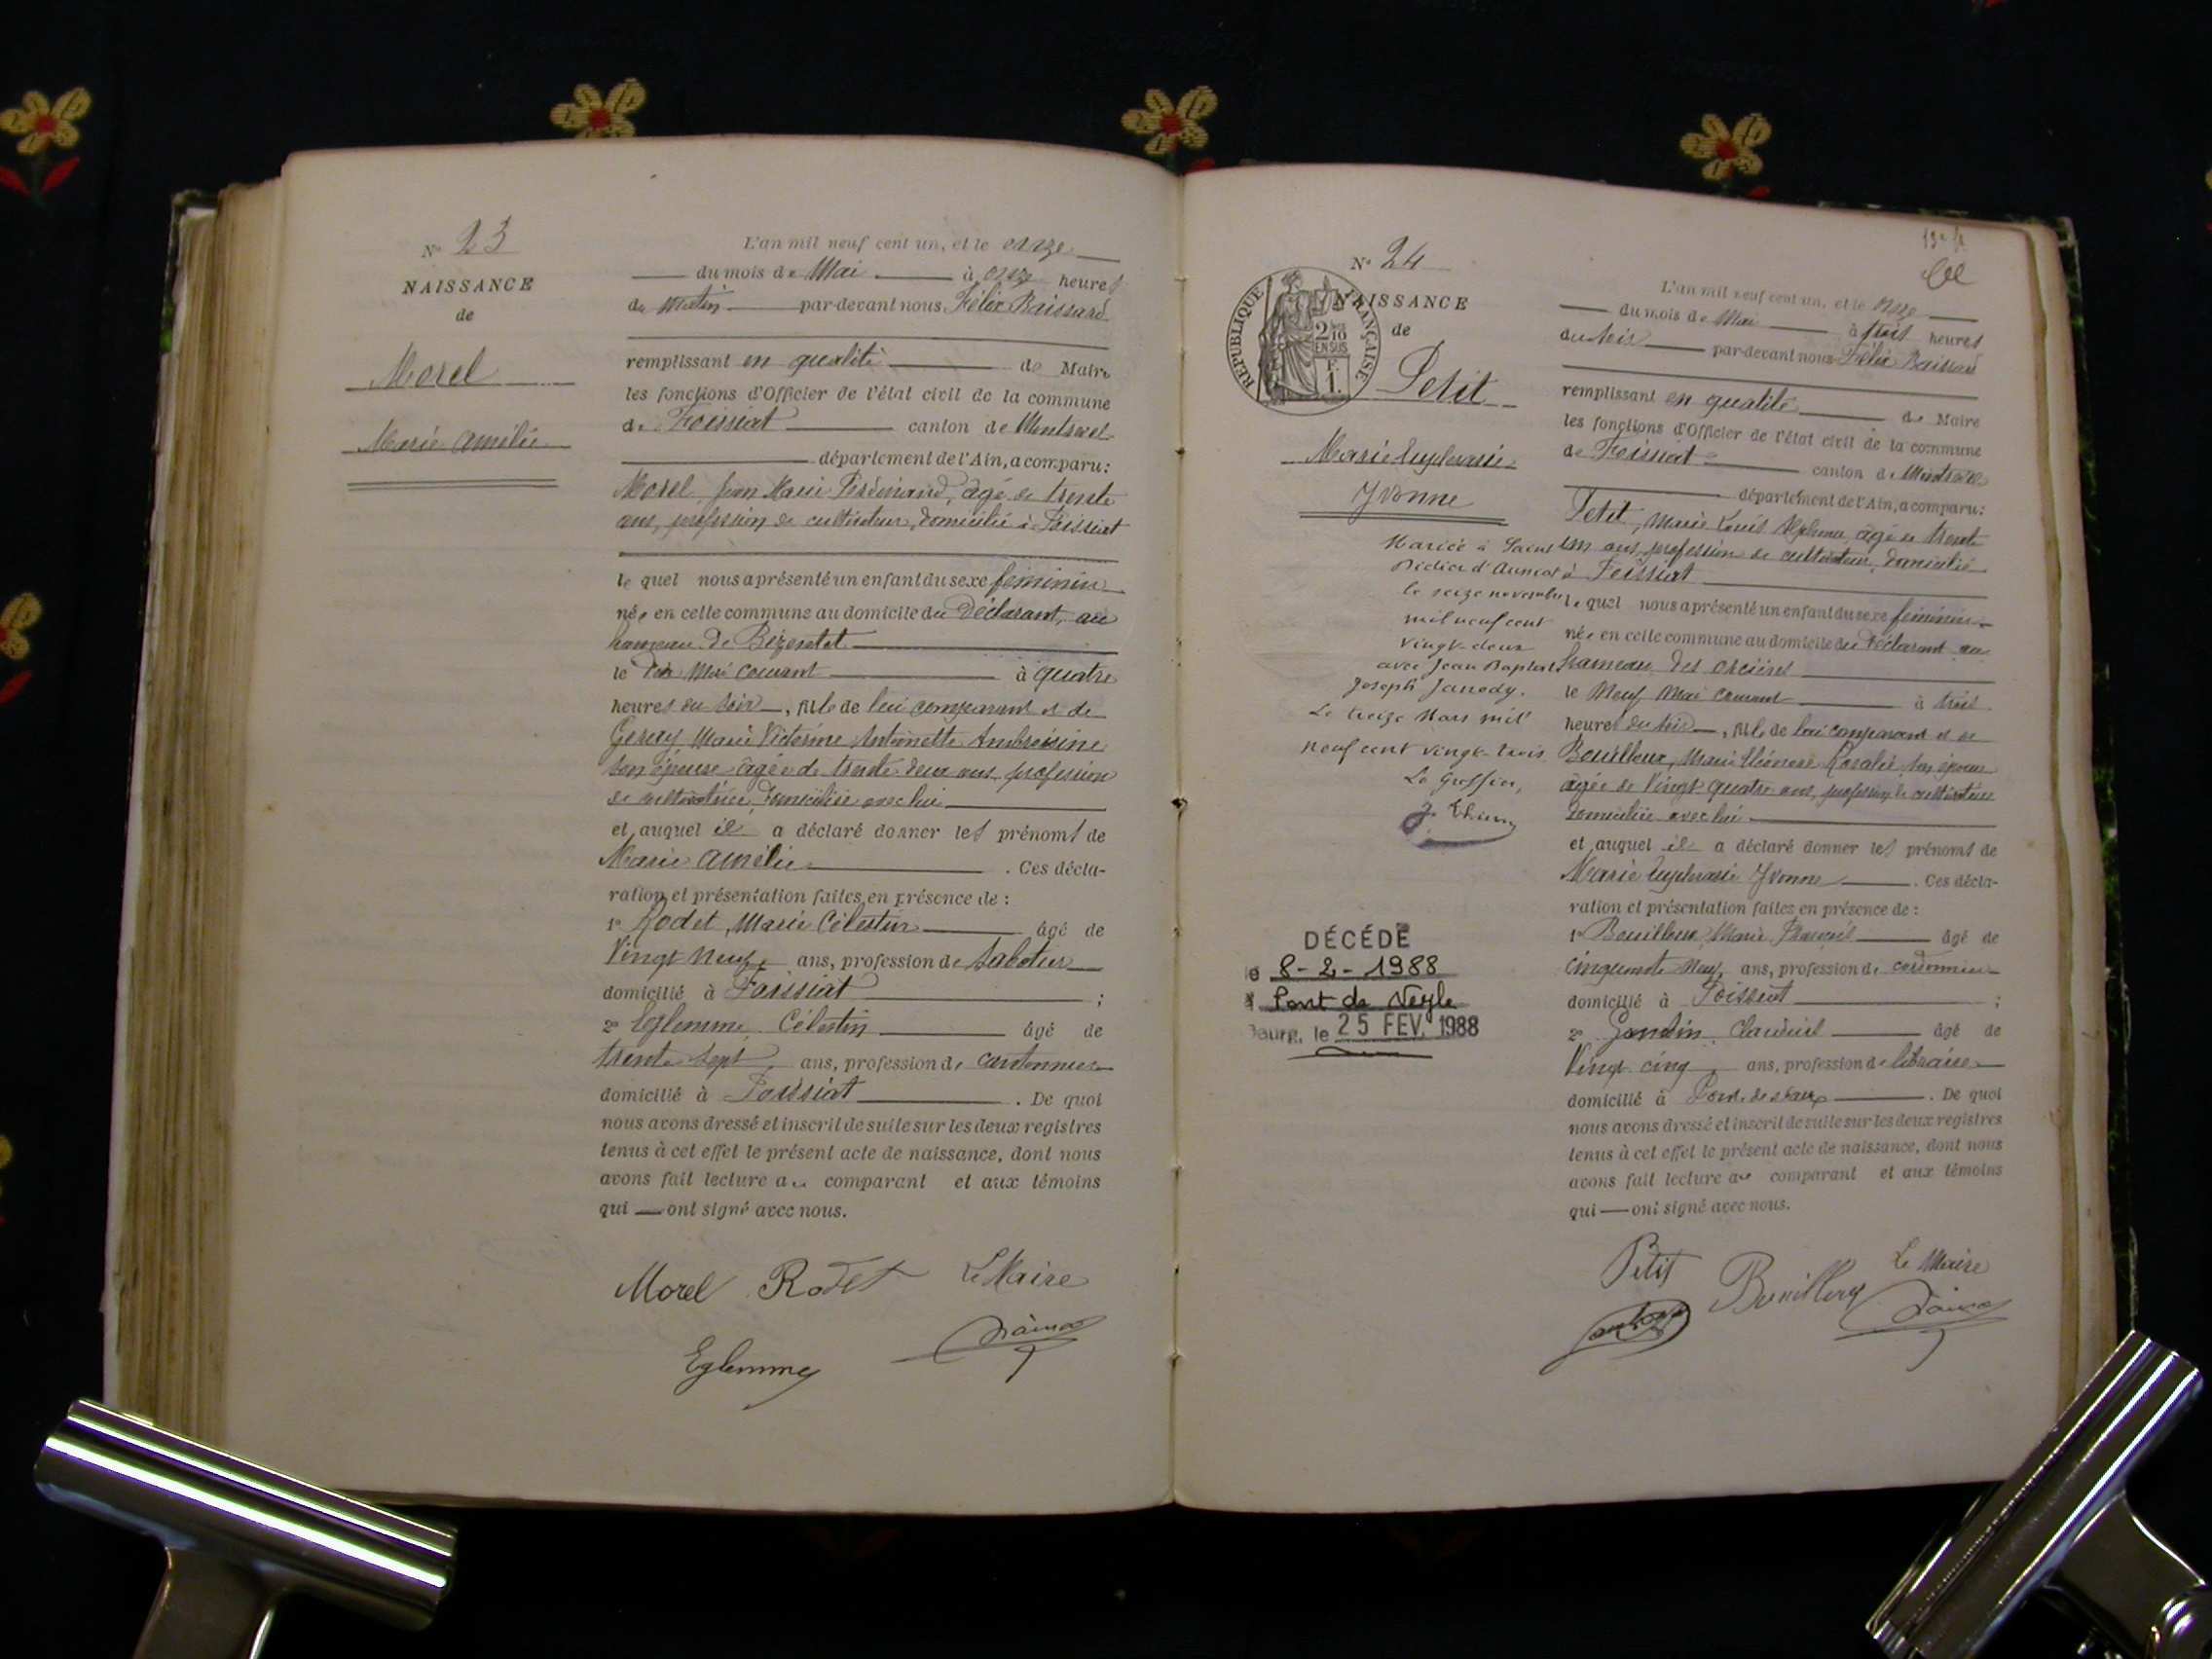 N° 23
NAISSANCE
de
Morel
Marie Amélie
L'an mil neuf cent un, et le onze
du mois de Mai à onze heures
du Matin par-devant nous Félix
remplissant en qualité de Maire
les fonctions d'Officier de l'état civil de la commune
de Foissiat canton de Montrevel
département de l'Ain, a comparu:
Morel Jean Marie Ferdinand, âgé de trente
ans, profession de cultivateur, domicilié à Foissiat
le quel nous a présenté un enfant du sexe féminin
née en cette commune au domicile du déclarant, au
hameau de
le dix Mai courant à quatre
heures du soir, fille de lui comparant et de
Marie Victorine Antoinette Ambroisine
son épouse âgée de trente deux ans, profession
de cultivatrice, domiciliée avec lui
et auquel il a déclaré donner les prénoms de
Marie Amélie. Ces décla-
ration et présentation faites en présence de :
1° Rodet, Marie Célestin âgé de
Vingt neuf ans, profession de sabotier
domicilié à Foissiat ;
2° Eglemme, Célestin âgé de
trente sept ans, profession de cantonnier
domicilié à Foissiat. De quoi
nous avons dressé et inscrit de suite sur les deux registres
tenus à cet effet le présent acte de naissance, dont nous
avons fait lecture au comparant et aux témoins
qui — ont signé avec nous.
Morel Rodet Le Maire
Eglemme
N° 24
RÉPUBLIQUE FRANÇAISE
2/10
EN SUS
F.
1.
NAISSANCE
de
Petit
Marie Euphrasie
Yvonne
Mariée à Saint
Didier d'Aussiat
le seize novembre
mil neuf cent
vingt-deux
avec Jean Baptiste
Joseph Janody.
Le treize Mars mil
neuf cent vingt-trois
Le Greffier,
DÉCÉDÉ
le 8-2-1988
à Pont de Veyle
Bourg, le 25 FEV. 1988
L'an mil neuf cent un, et le onze
du mois de Mai à trois heures
du soir par-devant nous Félix
remplissant en qualité de Maire
les fonctions d'Officier de l'état civil de la commune
de Foissiat canton de Montrevel
département de l'Ain, a comparu:
Petit, Marie Louis Alphonse, âgé de trente
un ans, profession de cultivateur, domicilié
à Foissiat
le quel nous a présenté un enfant du sexe féminin
née en cette commune au domicile du déclarant au
hameau des
le Neuf Mai courant à trois
heures du soir, fille de lui comparant et de
Bouilloux, Marie Eléonore Rosalie, son épouse
âgée de Vingt quatre ans, profession de cultivatrice
domiciliée avec lui
et auquel il a déclaré donner les prénoms de
Marie Euphrasie Yvonne. Ces décla-
ration et présentation faites en présence de :
1° Bouilloux, Marie François âgé de
cinquante Neuf ans, profession de cordonnier
domicilié à Foissiat ;
2° Claudius âgé de
Vingt cinq ans, profession de libraire
domicilié à Pont-de-Vaux. De quoi
nous avons dressé et inscrit de suite sur les deux registres
tenus à cet effet le présent acte de naissance, dont nous
avons fait lecture au comparant et aux témoins
qui — ont signé avec nous.
Petit Bouilloux Le Maire